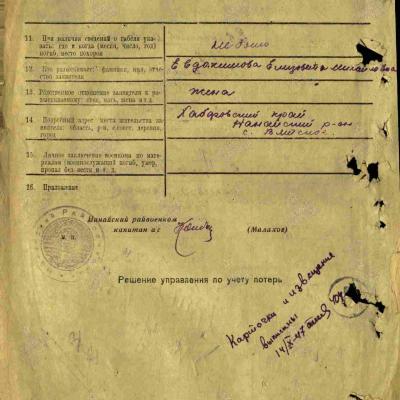 11. При наличии сведений о гибели ука-
зать: где и когда (месяц, число, год)
погиб, место похорон
не было
12. Кто разыскивает: фамилия, имя, отче-
ство заявителя
Евдокимова Елизавета Михайловна
13. Родственное отношение заявителя к ра-
зыскиваемому
жена
14. Подробный адрес места жительства за-
явителя: область, р-н, сельсовет, деревня,
город
Хабаровский край
Нанайский р-он
с.
15. Личное заключение военкома по мате-
риалам (военнослужащий погиб, умер,
пропал без вести и т. д.
16. Приложение
М. П.
Нанайский райвоенком
капитан а/с
(Малахов)
Решение управления по учету потерь
Карточки и извещения
высланы
14/X-47